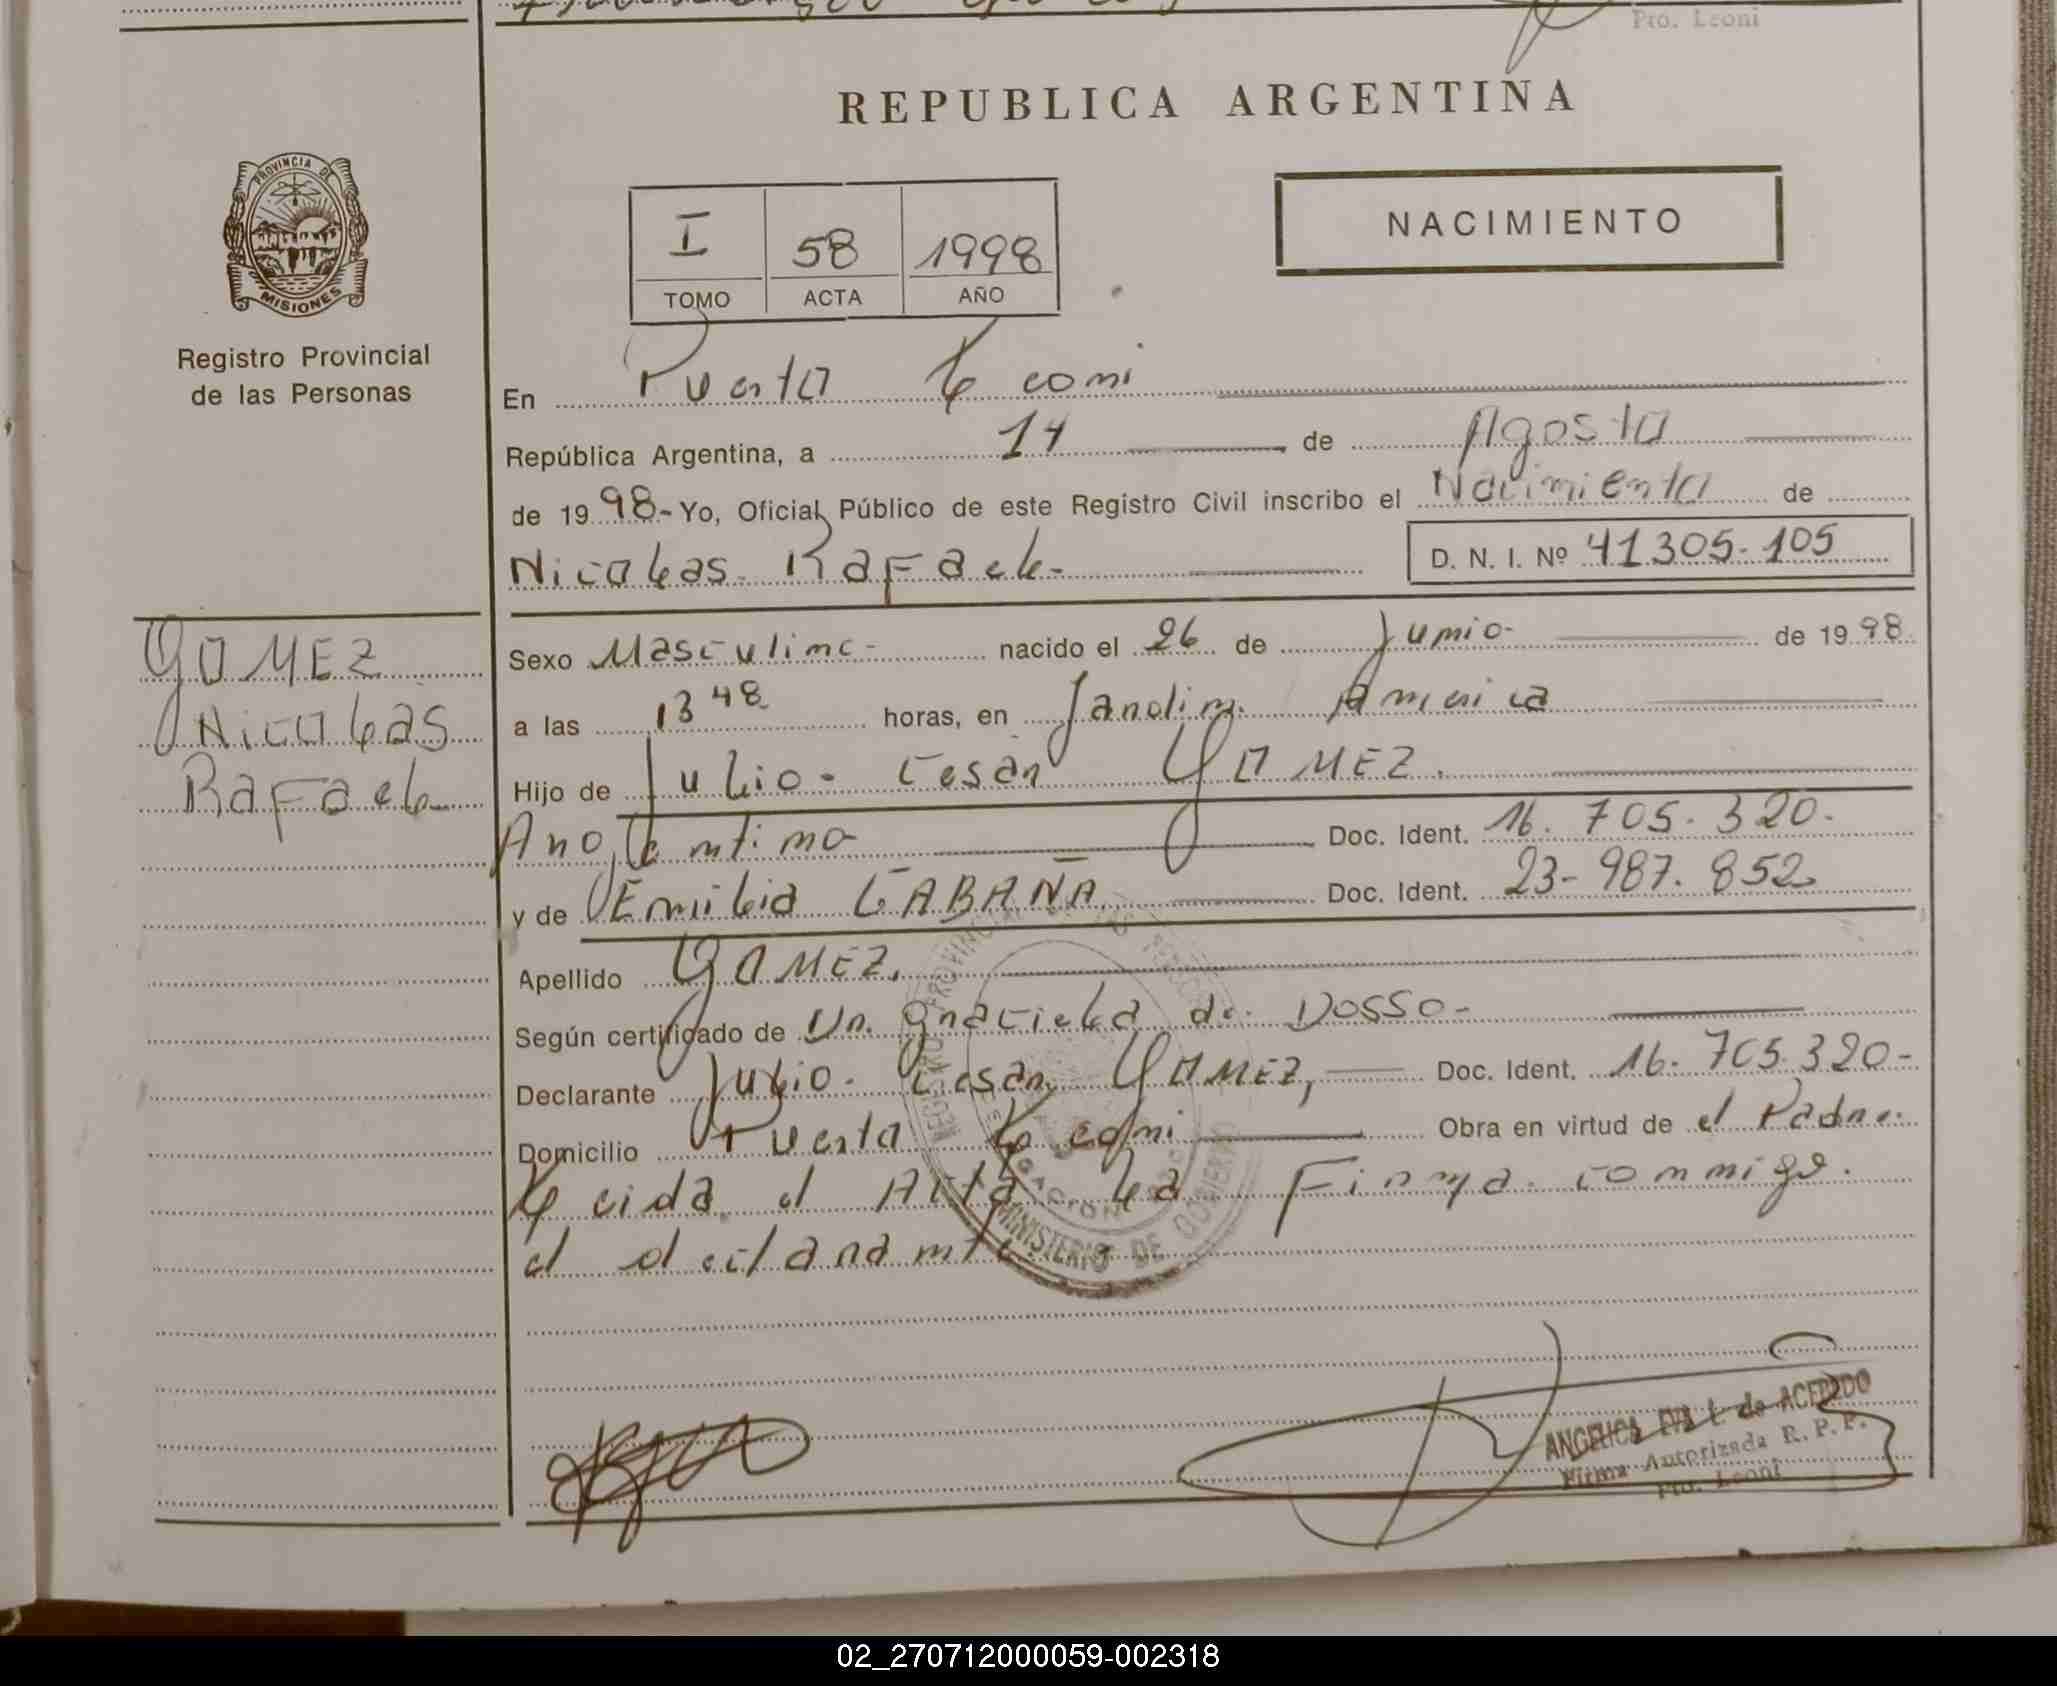 Pto. Leoni
REPUBLICA ARGENTINA
PROVINCIA DE
MISIONES
Registro Provincial
de las Personas
I 58 1998
TOMO ACTA AÑO
NACIMIENTO
En Puerto Leoni
República Argentina, a 14 de Agosto
de 1998- Yo, Oficial Público de este Registro Civil inscribo el Nacimiento de
Nicolas Rafael- D. N. I. Nº 41305-105
GOMEZ
Nicolas
Rafael
Sexo Masculino- nacido el 26 de Junio- de 1998
a las 13 48 horas, en Jardin America
Hijo de Julio- Cesar GOMEZ.
Argentino Doc. Ident. 16. 705. 320-
y de Emilia CABAÑA Doc. Ident. 23- 987. 852
Apellido GOMEZ.
Según certificado de Dr. Graciela de Dosso-
Declarante Julio- Cesar GOMEZ, Doc. Ident. 16- 705 320-
Domicilio Puerto Leoni Obra en virtud de el Padre.
Leida el Acta la Firma conmigo.
el declarante
MINISTERIO DE GOBIERNO
ANGELICA EVA L. de ACEVEDO
Firma Autorizada R. P. P.
Pto. Leoni
02_270712000059-002318